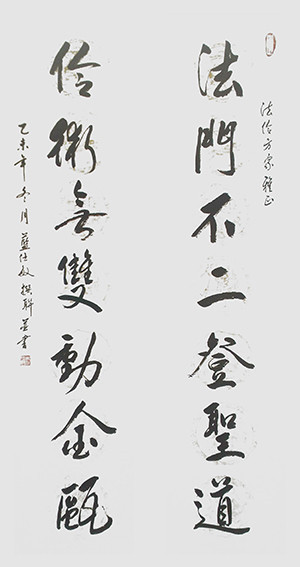 法伶方家雅正
法門不二登聖道
伶術無雙動金甌
乙未年冬月藍仕奴撰聯並書